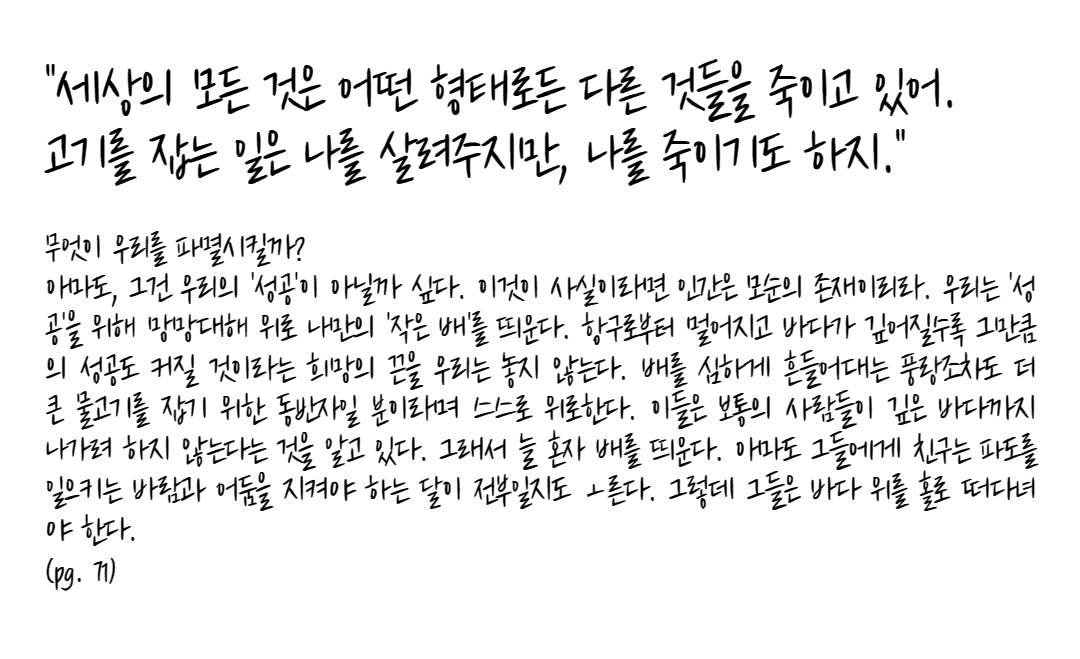 "세상의 모든 것은 어떤 형태로든 다른 것들을 죽이고 있어.
고기를 잡는 일은 나를 살려주지만, 나를 죽이기도 하지."
무엇이 우리를 파멸시킬까?
아마도, 그건 우리의 '성공'이 아닐까 싶다. 이것이 사실이라면 인간은 모순의 존재이리라. 우리는 '성
공'을 위해 망망대해 위로 나만의 '작은 배'를 띄운다. 항구로부터 멀어지고 바다가 깊어질수록 그만큼
의 성공도 커질 것이라는 희망의 끈을 우리는 놓지 않는다. 배를 심하게 흔들어대는 풍랑조차도 더
큰 물고기를 잡기 위한 동반자일 뿐이라며 스스로 위로한다. 이들은 보통의 사람들이 깊은 바다까지
나가려 하지 않는다는 것을 알고 있다. 그래서 늘 혼자 배를 띄운다. 아마도 그들에게 친구는 파도를
일으키는 바람과 어둠을 지켜야 하는 달이 전부일지도 ㅗ른다. 그렇데 그들은 바다 위를 홀로 떠다녀
야 한다.
(pg. 71)